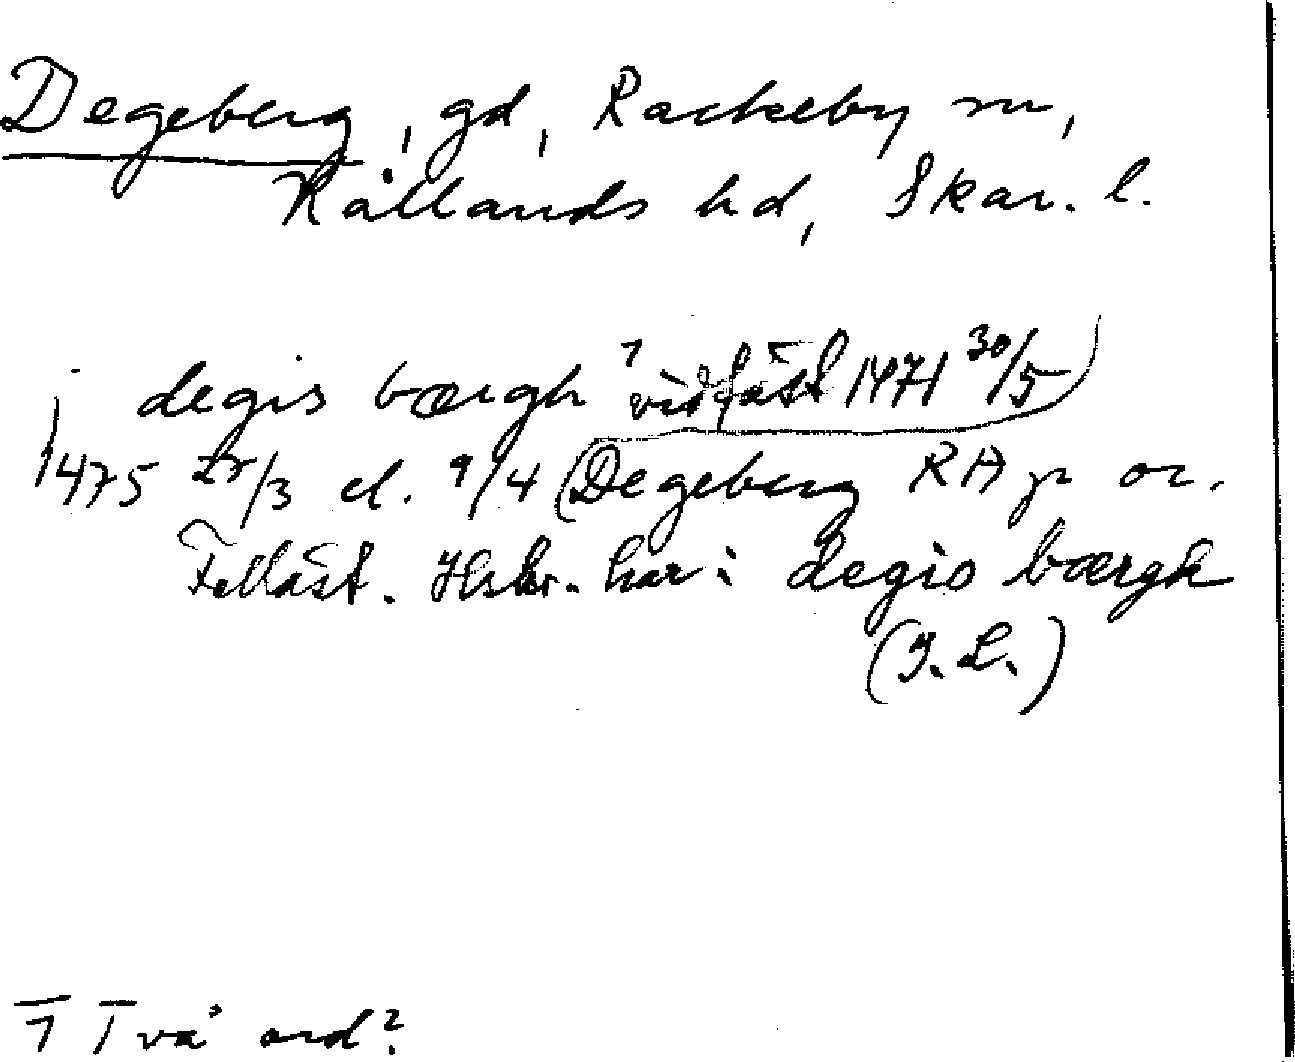 Degeberg, gd, Rackeby sn,
Kållands hd, Skar. l.
j degis bærgh ¹ vidfäst 1471 30/5
1475 27/3 el. 9/4 (Degeberg) RA p or.
Felläst. Hskr. har: degis bærgh
(I. L.)
1 Två ord?